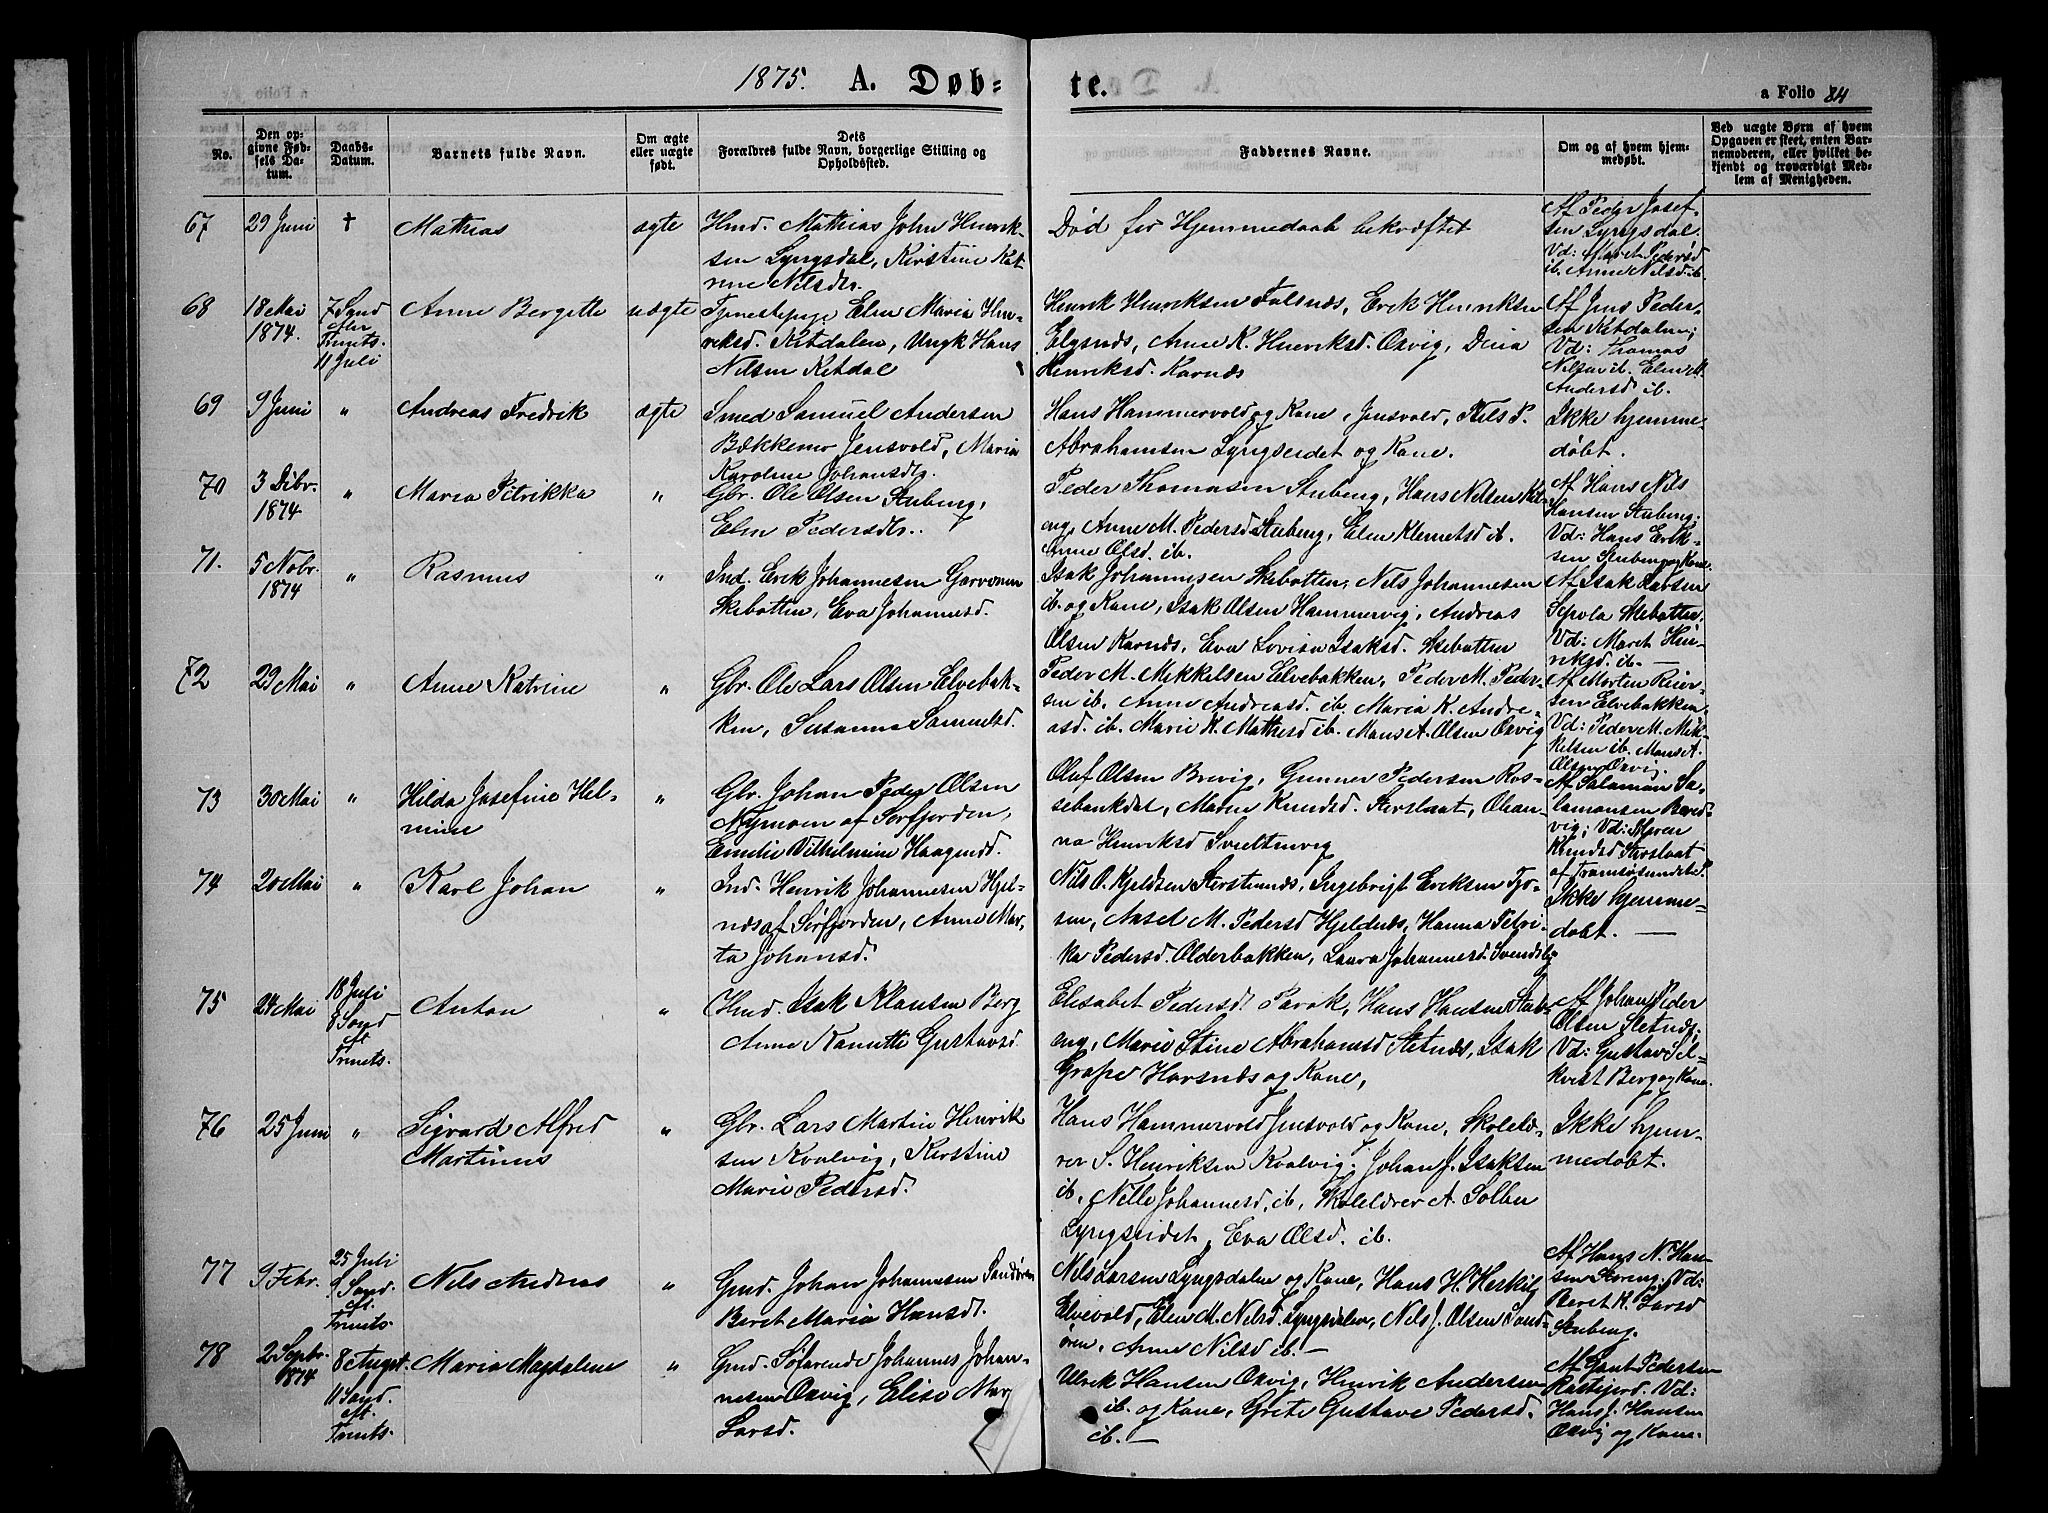 1875. A. Døb= te. a Folio 84
No.
Den op=
givne Fød=
sels Da=
tum.
Daabs=
Datum.
Barnets fulde Navn.
Om ægte
eller uægte
født.
Dets
Forældres fulde Navn, borgerlige Stilling og
Opholdssted.
Faddernes Navne.
Om og af hvem hjem=
medøbt.
Ved uægte Børn af hvem
Opgaven er skeet, enten Bar=
nemoderen, eller hvilket be=
kjendt og troværdigt Med=
lem af Menigheden.
67
29 Juni
†
Mathias
ægte
Hmd. Mathias John Henrik=
sen Lyngsdal, Kirstine Kat
rine Nilsdtr.
Død før Hjemmedaab bekræftet
Af Peder Josef=
sen Lyngsdal.
Vd: Maret Pedersd
ib. Anne Nilsd ib.
68
18 Mai
1874.
7 Sønd
efter
Trinits.
11 Juli
Anne Bergette
uægte
Tjenestepige Elen Maria Hen=
riksd. Kitdalen, Ungk Hans
Nilsen Kitdal
Henrik Henriksen Falsnæs, Erik Henriksen
Elgsnæs, Anne K. Henriksd. Oxvig, Dina
Henriksd. Karnæs
Af Jens Peder=
sen Kitdalen;
Vd: Thomas
Nilsen ib. Elen M.
Andersd ib.
69
9 Juni
"
Andreas Fredrik
ægte
Smed Samuel Andersen
Bækkemo Jensvold, Maria
Karoline Johansdtr.
Hans Hammervold og Kone, Jensvold, Nils P.
Abrahamsen Lyngseidet og Kone.
Ikke hjemme=
døbt.
70
3 Dcbr.
1874
"
Maria Petrikka
"
Gbr. Ole Olsen Steberg,
Elen Pedersdtr.
Peder Thomasen Stubeng, Hans Nilsen Kit=
eng, Anne M. Pedersd Stubeng, Elen Klemetsd ib.
Anne Olsd. ib.
Af Hans Nils
Hansen Stubeng;
Vd: Hans Erik=
sen Stubeng og Kone.
71.
5 Nobr.
1874
"
Rasmus
"
Ind. Erik Johannesen
Skibotten, Eva Johannesd.
Isak Johannesen Skibotten, Nils Johannesen
ib. og Kone, Isak Olsen Hammervig, Andreas
Olsen Karnæs, Eva Lovisa Isaksd. Skibotten
Af Isak Larsen
Skibotten,
Vd: Maret Hen=
riksd. ib. —
72
29 Mai
"
Anne Katrine
"
Gbr. Ole Lars Olsen Elvebak=
ken, Susanna Samuelsd.
Peder M. Mikkelsen Elvebakken, Peder M. Peder=
sen ib. Anne Andreasd. ib. Maria K. Andre=
asd. ib. Marie K. Mathisd ib. Mons A. Olsen Oxvig
Af Morten Reier=
sen Elvebakken.
Vd: Peder M. Mik=
kelsen ib. Mons A.
Olsen Oxvig.
73
30 Mai
"
Hilda Josefine Hel=
mine
"
Gbr. Johan Peder Olsen
Nymoen af Sørfjorden,
Emelie Vilhelmine Haagensd.
Oluf Olsen Brevig, Gunner Pedersen Ros=
sebankdal, Maren Knudsd. Sterslaat, Ohan=
na Henriksd
Af Salamon Sa=
lamonsen Bred=
vig; Vd: Maren
Knudsd Sterslaat
af Tromsøsundets P.
74
20 Mai
"
Karl Johan
"
Ind. Henrik Johannesen Hjel=
næs af Sørfjorden, Anne Mar=
ta Johansd.
Nils O. Kjeldsen Sterstnæs, Ingebrigt Eriksen Tjo=
sen, Axsel M. Pedersd Hjeldnæs, Hanna Petri=
ka Pedersd. Olderbakken, Laura Johannesd. Svendsby
Ikke hjemme=
døbt. —
75
24 Mai
18 Juli
8 Sønd
eft
Trinits.
Anton
"
Hmd. Isak Klausen Berg
Anne Kanutte Gustavsd.
Elisabet Pedersd. Parak, Hans Hansen Stub=
eng, Marie Stine Abrahamsd Sletnæs, Isak
Grape Horsnæs og Kone,
Af Johan Peder
Olsen Sletnæs.
Vd: Gustav Sel=
kvist Berg og Kone.
76
25 Juni
"
Sigvard Alfred
Martinus
"
Gbr. Lars Martin Henrik
sen Kvalvig, Kirstine
Marie Pedersd.
Hans Hammervold Jensvold og Kone, Skolelæ=
rer S. Henriksen Kvalvig, Johan J. Isaksen
ib, Nelle Johannesd, ib, Skolelærer A. Solber
Lyngseidet, Eva Olsd. ib.
Ikke hjem=
medøbt.
77
9 Febr.
25 Juli
9 Sønd.
eft.
Trinits.
Nils Andreas
"
Gmd. Johan Johannesen Sandøren
Beret Maria Hansd.
Nils Larsen Lyngsdalen og Kone, Hans H. Herkil
Elvevold, Elen M. Nilsd. Lyngsdalen, Nils J. Olsen Sand=
øren, Anne Nilsd ib. —
Af Hans N. Han=
sen Storeng. Vd:
Beret K. Larsd
Stubeng.
78
2 Septbr.
1874
8 August.
11 Sønd.
eft.
Trinits.
Maria Magdalene
"
Gmd. Søfarende Johannes Johan=
nesen Oxvig, Elise Mar
Larsd.
Ulrik Hansen Oxvig, Henrik Andersen
ib. og Kone, Grete Gustave Pedersd.
ib. —
Af Gant Pedersen
Rasteford. Vd:
Hans J. Hansen
Oxvig og Kone.